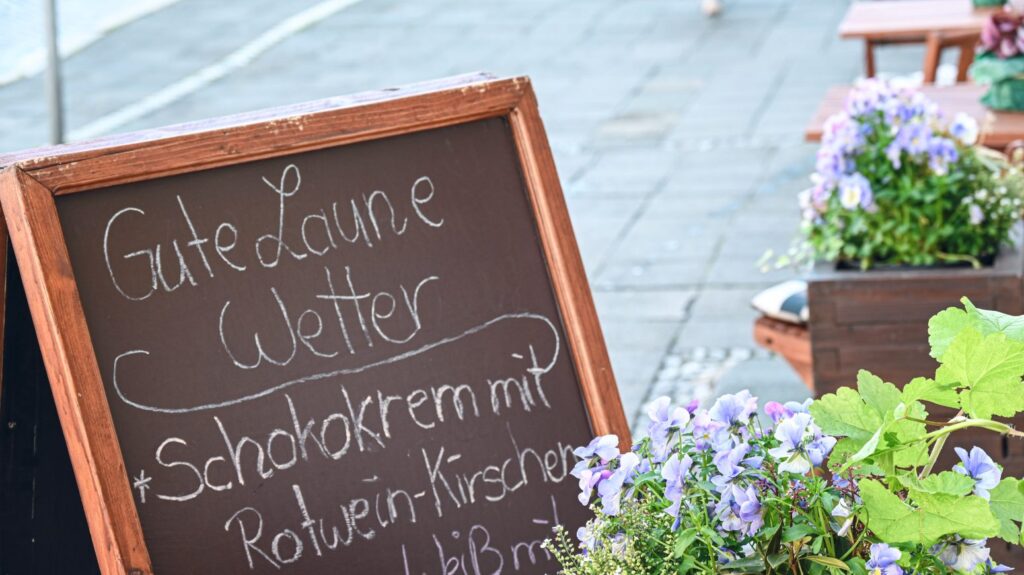 Gute Laune
Wetter
*Schokokrem mit
Rotwein-Kirschen